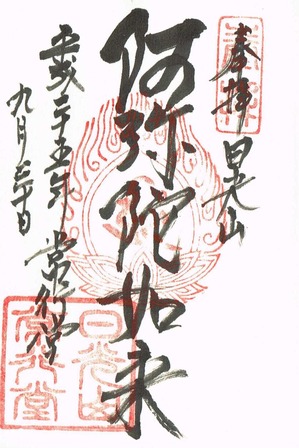 奉拝 日光山
阿弥陀如来
常行堂
平成二十五年
九月三十日
日光山
常行堂